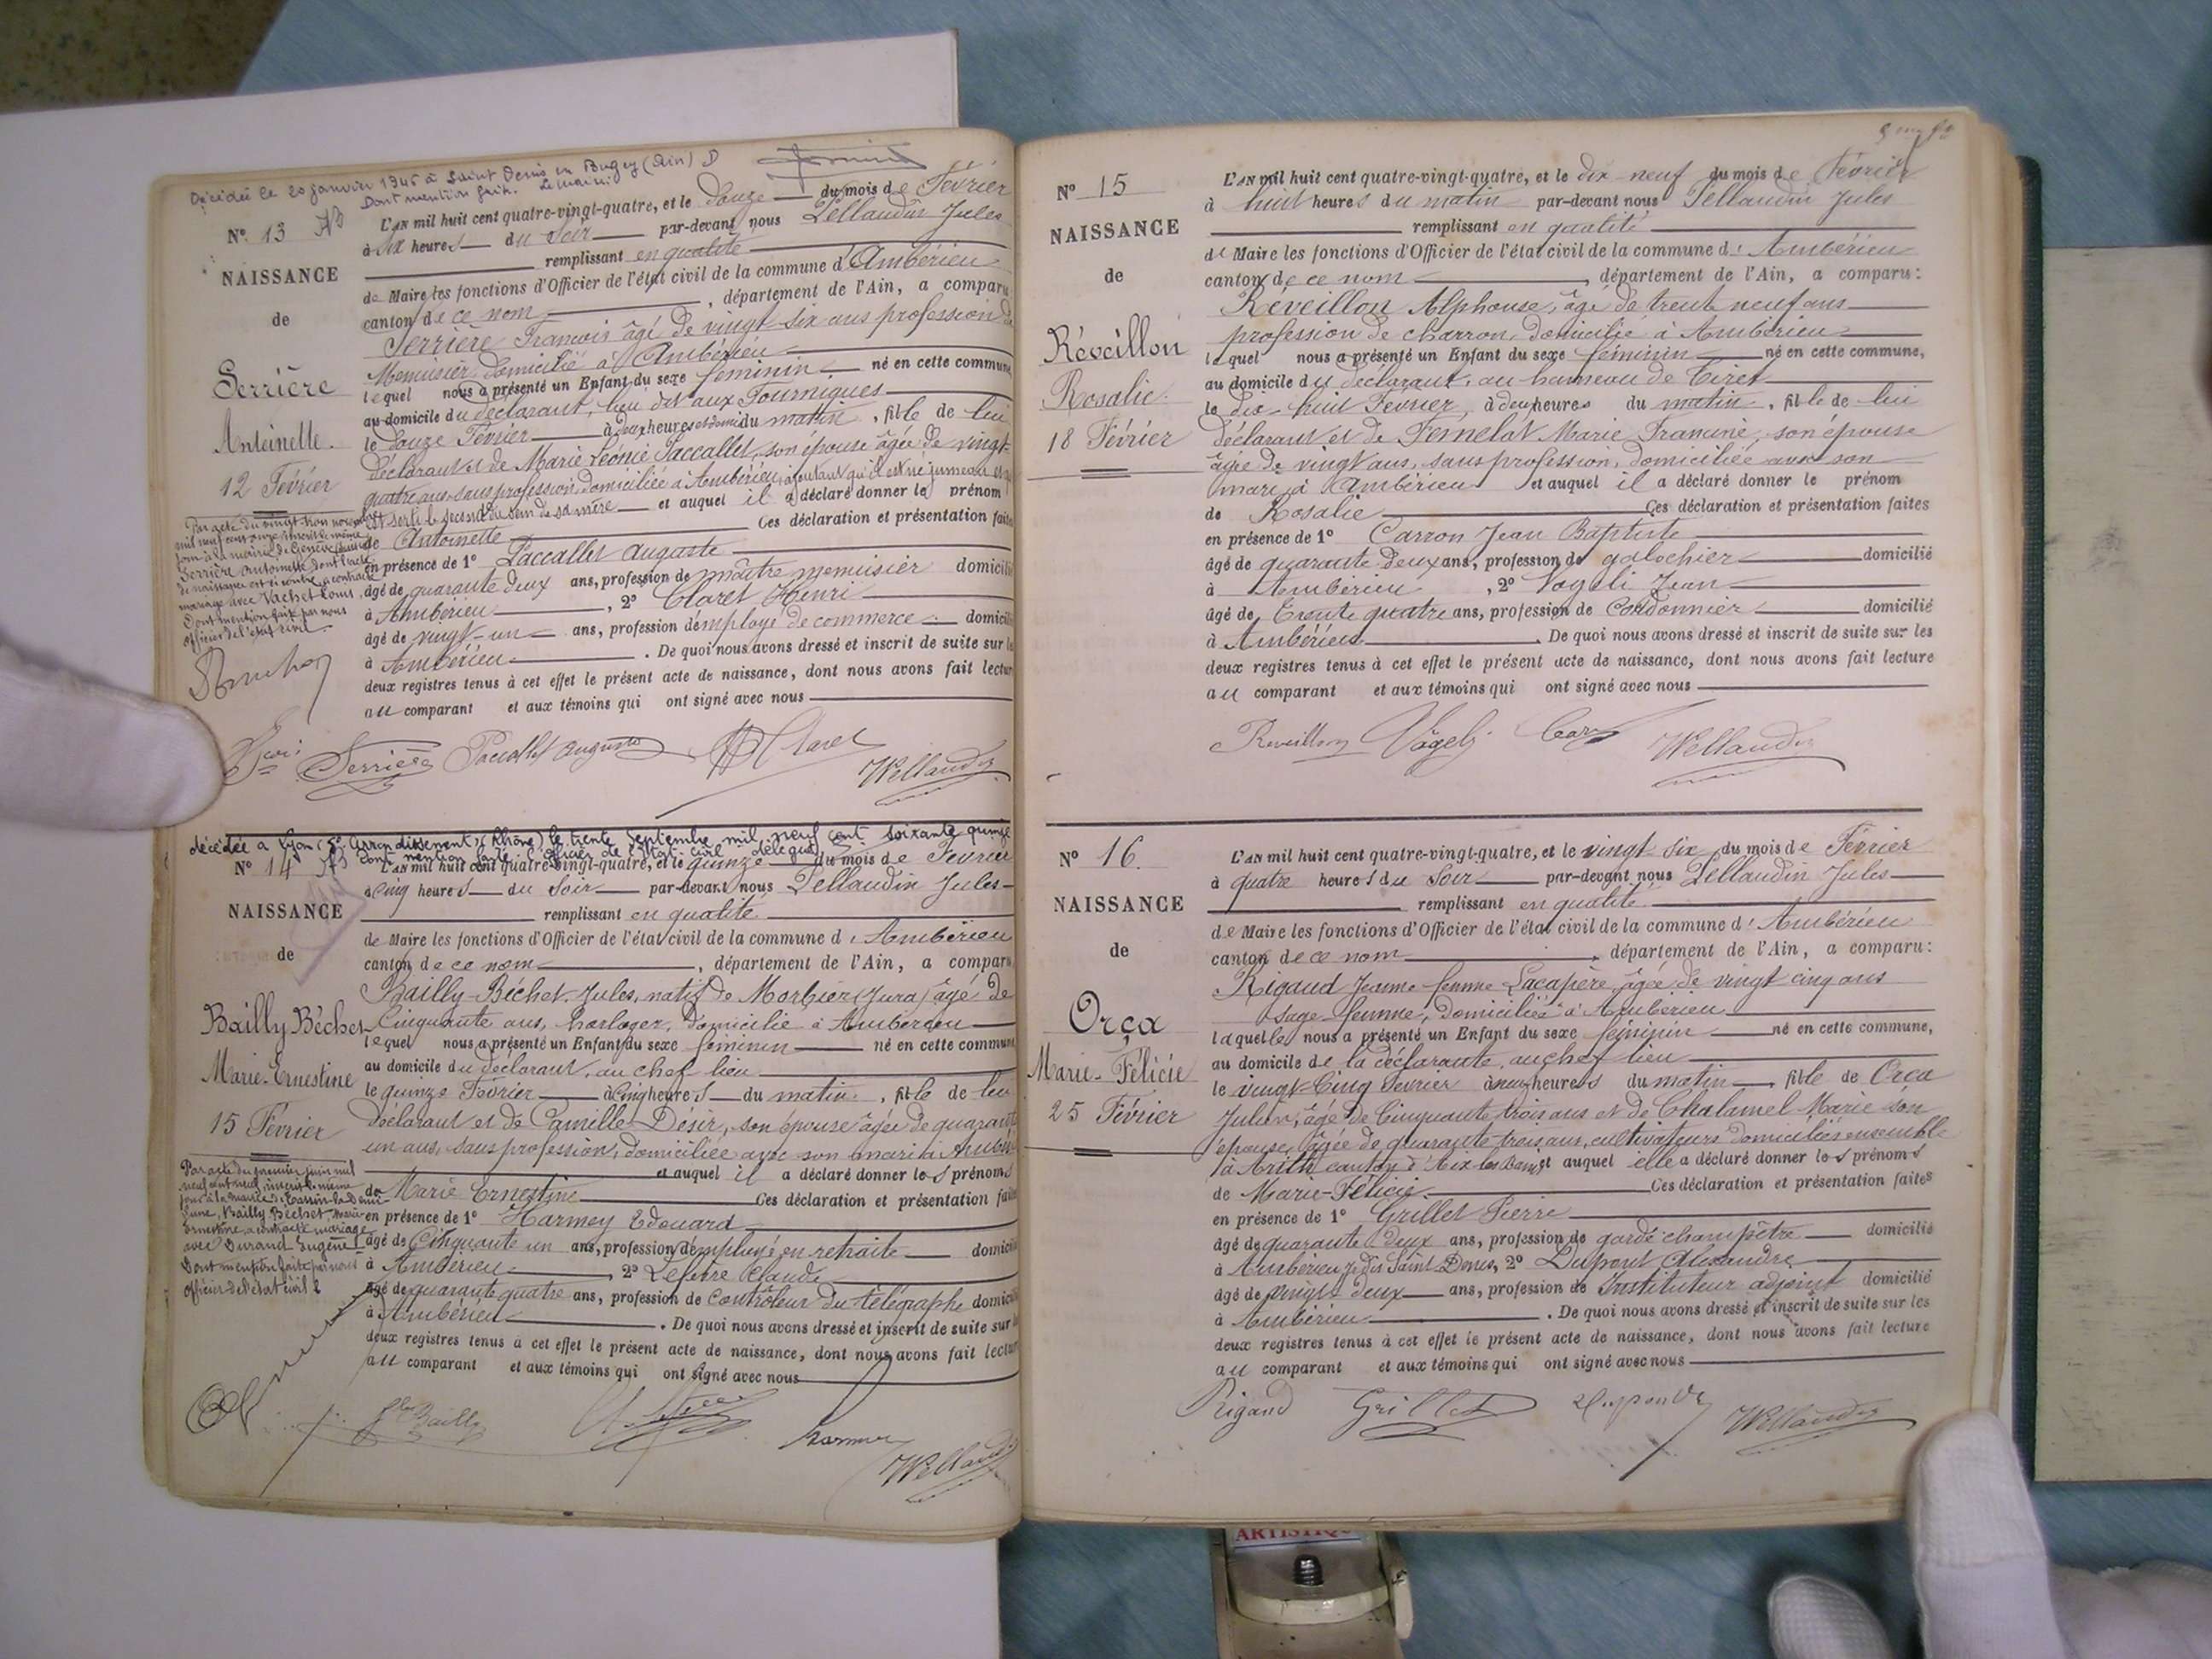 Décédée le 20 janvier 1945 à Saint Denis en Bugey (Ain)
Dont mention faite. Le Maire
N° 13
NAISSANCE
de
Serrière
Antoinette.
12 Février
L'AN mil huit cent quatre-vingt-quatre, et le douze du mois de Février
à six heures du soir par-devant nous Pellaudin Jules
remplissant en qualité
de Maire les fonctions d'Officier de l'état civil de la commune d'Ambérieu
canton de ce nom, département de l'Ain, a comparu
Serrière François âgé de vingt-six ans profession de
Menuisier domicilié à Ambérieu
lequel nous a présenté un Enfant du sexe féminin né en cette commune
au domicile du déclarant, lieu dit aux Fourniques
le douze Février à deux heures et demi du matin, fille de lui
déclarant et de Marie Léonie Paccallet, son épouse âgée de vingt-
quatre ans, sans profession, domiciliée à Ambérieu, ajoutant qu'il est né jumeau et
est sorti le second du sein de sa mère et auquel il a déclaré donner le prénom
de Antoinette Ces déclaration et présentation faites
en présence de 1° Paccallet Auguste
âgé de quarante deux ans, profession de maître menuisier domicilié
à Ambérieu, 2° Claret Henri
âgé de vingt-un ans, profession d'employé de commerce domicilié
à Ambérieu. De quoi nous avons dressé et inscrit de suite sur les
deux registres tenus à cet effet le présent acte de naissance, dont nous avons fait lecture
au comparant et aux témoins qui ont signé avec nous
Par acte du vingt trois novembre
mil neuf cent onze inscrit le même
jour à la mairie de Genève (Suisse)
Serrière Antoinette dont l'acte
de naissance est ci contre a contracté
mariage avec Vachet Louis
Dont mention faite par nous
officier de l'état civil.
Serrière Paccallet Auguste H Claret
Pellaudin
décédée à Lyon (5e Arrondissement) (Rhône) le trente Septembre mil neuf cent soixante quinze
dont mention faite. L'officier de l'état-civil délégué
N° 14
NAISSANCE
de
Bailly Béchet
Marie-Ernestine
15 Février
L'AN mil huit cent quatre-vingt-quatre, et le quinze du mois de Février
à cinq heures du soir par-devant nous Pellaudin Jules
remplissant en qualité
de Maire les fonctions d'Officier de l'état civil de la commune d'Ambérieu
canton de ce nom, département de l'Ain, a comparu
Bailly-Béchet Jules, natif de Morbier (Jura) âgé de
Cinquante ans, horloger, domicilié à Ambérieu
lequel nous a présenté un Enfant du sexe féminin né en cette commune
au domicile du déclarant, au chef lieu
le quinze Février à cinq heures du matin, fille de lui
déclarant et de Camille Désir, son épouse âgée de quarante
un ans, sans profession, domiciliée avec son mari à Ambérieu
et auquel il a déclaré donner les prénoms
de Marie Ernestine Ces déclaration et présentation faites
en présence de 1° Harmey Edouard
âgé de Cinquante un ans, profession d'employé en retraite domicilié
à Ambérieu, 2° Lefèvre Claude
âgé de quarante quatre ans, profession de Contrôleur du télégraphe domicilié
à Ambérieu. De quoi nous avons dressé et inscrit de suite sur les
deux registres tenus à cet effet le présent acte de naissance, dont nous avons fait lecture
au comparant et aux témoins qui ont signé avec nous
Par acte du premier juin mil
neuf cent neuf, inscrit le même
jour à la mairie de Tassin-la-Demi
Lune, Bailly Béchet, Marie
Ernestine a contracté mariage
avec Durand Eugène
Dont mention faite par nous
officier de l'état civil
Bailly Harmey
Pellaudin
N° 15
NAISSANCE
de
Réveillon
Rosalie.
18 Février
L'AN mil huit cent quatre-vingt-quatre, et le dix-neuf du mois de Février
à huit heures du matin par-devant nous Pellaudin Jules
remplissant en qualité
de Maire les fonctions d'Officier de l'état civil de la commune d'Ambérieu
canton de ce nom, département de l'Ain, a comparu:
Réveillon Alphonse, âgé de trente neuf ans
profession de charron, domicilié à Ambérieu
lequel nous a présenté un Enfant du sexe féminin né en cette commune,
au domicile du déclarant, au hameau de Tiret
le dix-huit Février, à deux heures du matin, fille de lui
déclarant et de Fernelat Marie Francine, son épouse
âgée de vingt ans, sans profession, domiciliée avec son
mari à Ambérieu et auquel il a déclaré donner le prénom
de Rosalie Ces déclaration et présentation faites
en présence de 1° Carron Jean Baptiste
âgé de quarante deux ans, profession de galochier domicilié
à Ambérieu, 2° Vogeli Jean
âgé de Trente quatre ans, profession de Cordonnier domicilié
à Ambérieu. De quoi nous avons dressé et inscrit de suite sur les
deux registres tenus à cet effet le présent acte de naissance, dont nous avons fait lecture
au comparant et aux témoins qui ont signé avec nous
Reveillon Vögeli Carron Pellaudin
N° 16.
NAISSANCE
de
Orça
Marie-Félicie
25 Février
L'AN mil huit cent quatre-vingt-quatre, et le vingt six du mois de Février
à quatre heures du soir par-devant nous Pellaudin Jules
remplissant en qualité
de Maire les fonctions d'Officier de l'état civil de la commune d'Ambérieu
canton de ce nom, département de l'Ain, a comparu:
Rigaud Jeanne femme Lacapère, âgée de vingt cinq ans
sage-femme, domiciliée à Ambérieu
laquelle nous a présenté un Enfant du sexe féminin né en cette commune,
au domicile de la déclarante, au chef lieu
le vingt-Cinq Février à neuf heures du matin, fille de Orça
Julien, âgé de Cinquante trois ans et de Chalamel Marie son
épouse, âgée de quarante trois ans, cultivateurs domiciliés ensemble
à Arith canton d'Aix les Bains et auquel elle a déclaré donner les prénoms
de Marie-Félicie. Ces déclaration et présentation faites
en présence de 1° Grillet Pierre
âgé de quarante deux ans, profession de garde champêtre domicilié
à Ambérieu jadis Saint Denis, 2° Dupont Alexandre
âgé de vingt deux ans, profession de Instituteur adjoint domicilié
à Ambérieu. De quoi nous avons dressé et inscrit de suite sur les
deux registres tenus à cet effet le présent acte de naissance, dont nous avons fait lecture
au comparant et aux témoins qui ont signé avec nous
Rigaud Grillet Dupont Pellaudin
ARTISTIQ